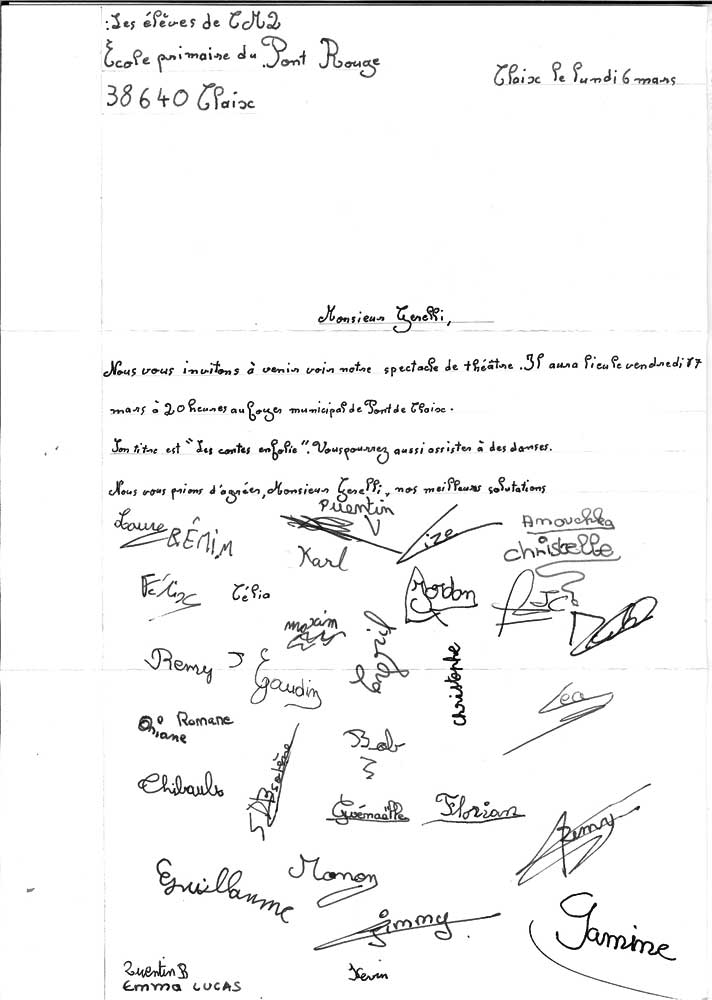 Les élèves de CM2
École primaire du Pont Rouge
38640 Claix
Claix le lundi 6 mars
Monsieur Gerelli,
Nous vous invitons à venir voir notre spectacle de théâtre. Il aura lieu le vendredi 17
mars à 20 heures au foyer municipal de Pont de Claix.
Son titre est "Les contes en folie". Vous pourrez aussi assister à des danses.
Nous vous prions d'agréer, Monsieur Gerelli, nos meilleures salutations
Quentin V
Laure
BÉNIM
Karl
Anouchka
Christelle
Félix
Célia
Jordan
maxim
Remy J
Gaudin
christophe
Lea
Romane
Oriane
Bob
Thibault
Gwénaëlle
Florian
Remy
Guillaume
Manon
Jimmy
Yamine
Quentin B
Kevin
Emma LUCAS